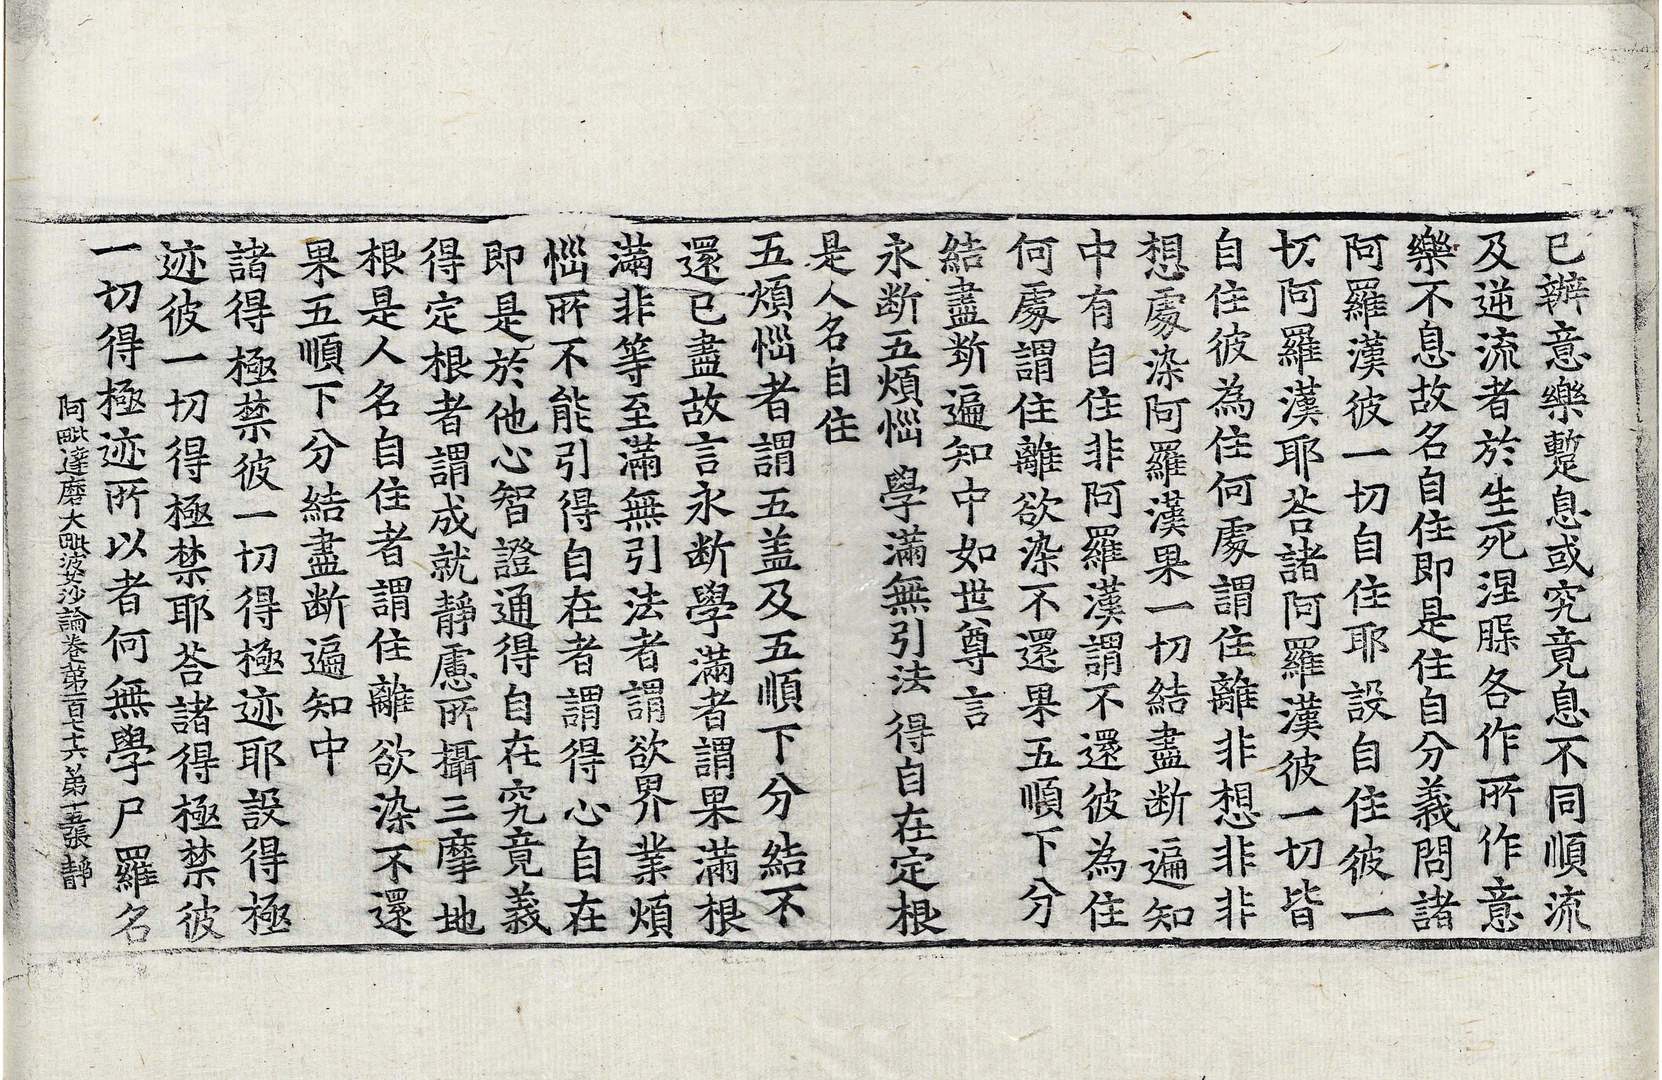 已辦意樂蹔息或究竟息不同順流
及逆流者於生死涅槃各作所作意
樂不息故名自住即是住自分義問諸
阿羅漢彼一切自住耶設自住彼一
切阿羅漢耶荅諸阿羅漢彼一切皆
自住彼為住何處謂住離非想非非
想處染阿羅漢果一切結盡断遍知
中有自住非阿羅漢謂不還彼為住
何處謂住離欲染不還果五順下分
結盡斷遍知中如世尊言
永断五煩惱 學滿無引法 得自在定根
是人名自住
五煩惱者謂五盖及五順下分結不
還已盡故言永断學滿者謂果滿根
滿非等至滿無引法者謂欲界業煩
惱所不能引得自在者謂得心自在
即是於他心智證通得自在究竟義
得定根者謂成就靜慮所攝三摩地
根是人名自住者謂住離欲染不還
果五順下分結盡断遍知中
諸得極禁彼一切得極迹耶設得極
迹彼一切得極禁耶荅諸得極禁彼
一切得極迹所以者何無學尸羅名
阿毗達磨大毗婆沙論卷第一百七十六 第十五張 靜